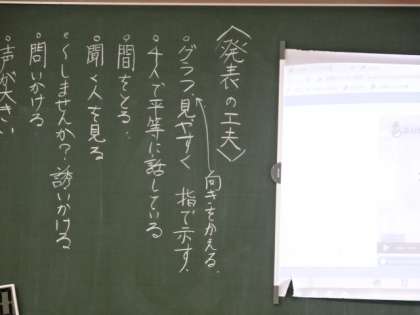 〈発表の工夫〉
向きをかえる。
・グラフ、見やすく 指で示す。
・4人で平等に話している
・間をとる…
・聞く人を見る
・〜しませんか？誘いかける
・問いかける
・声が大きい